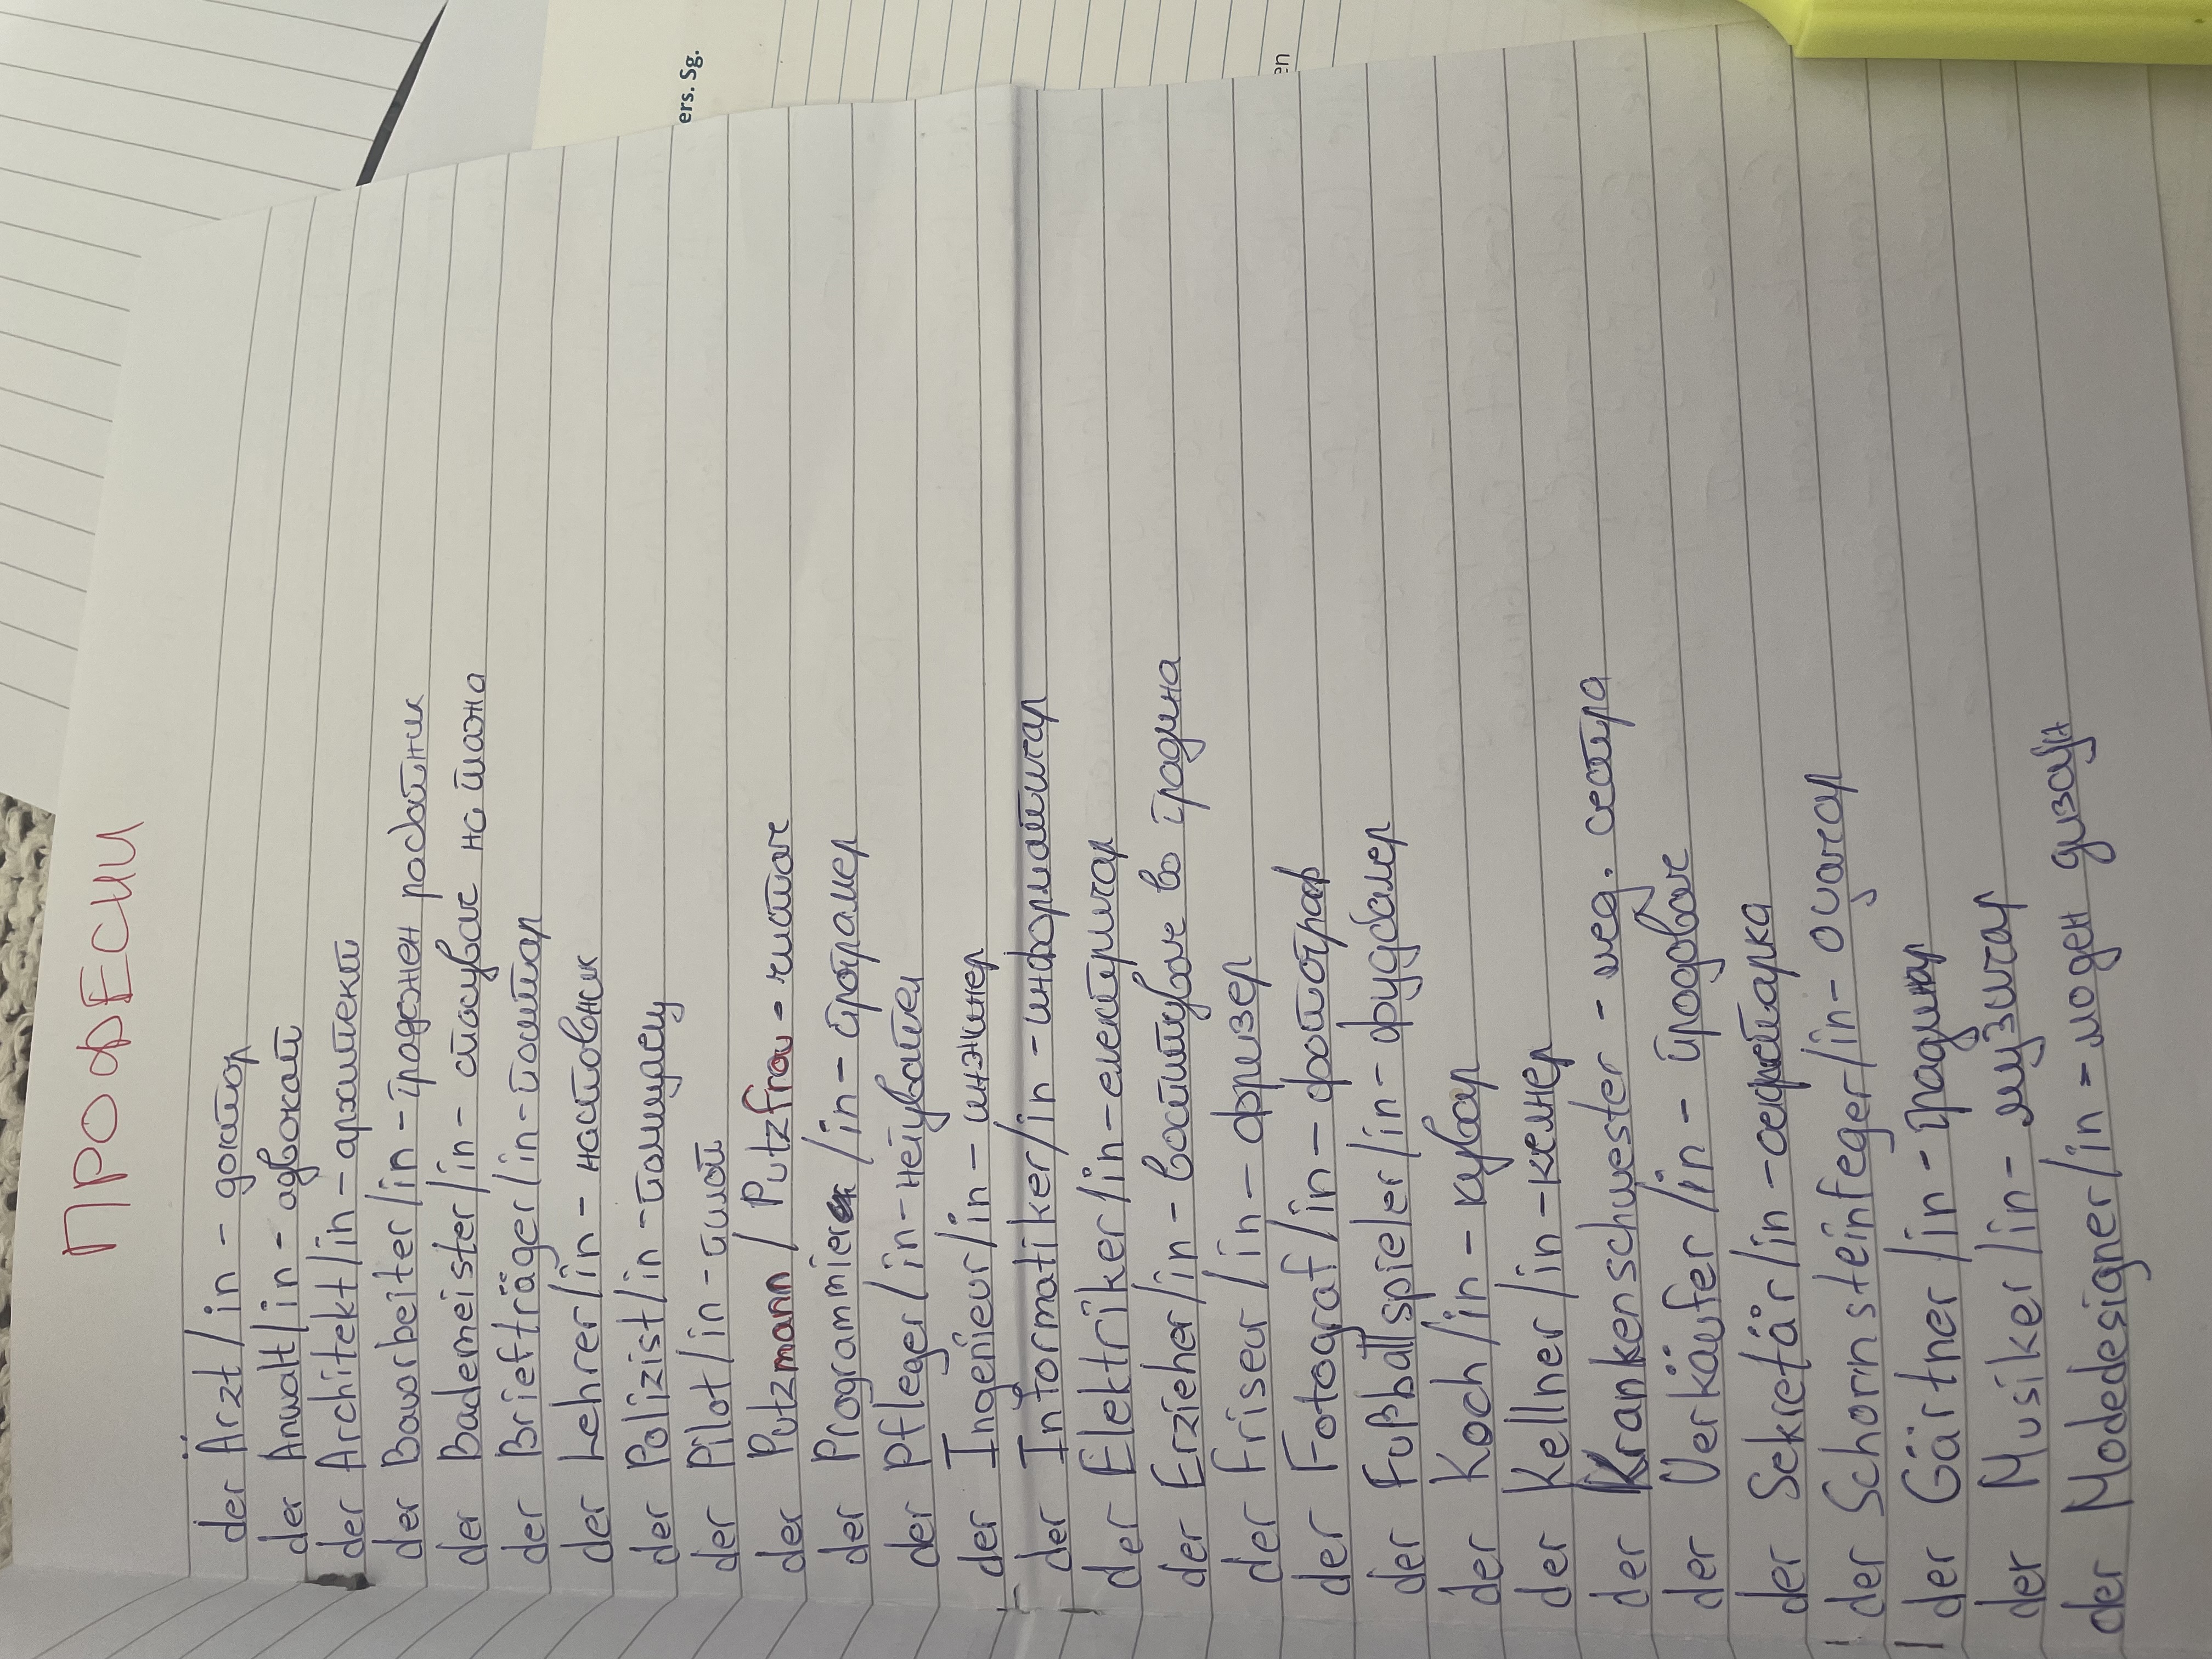 ПРОФЕСИИ
der Ärzt/in - доктор
der Anwalt/in - адвокат
der Architekt/in - архитект
der Bauarbeiter/in - градежен работник
der Bademeister/in - спасувач на плажа
der Briefträger/in - поштар
der Lehrer/in - наставник
der Polizist/in - полицаец
der Pilot/in - пилот
der Putzmann / Putzfrau - чистач
der Programmierer /in - програмер
der Pfleger/in - негувател
der Ingenieur/in - инжинер
der Informatiker/in - информатичар
der Elektriker/in - електричар
der Erzieher/in - воспитувач во градина
der Friseur/in - фризер
der Fotograf/in - фотограф
der Fußballspieler/in - фудбалер
der Koch/in - кувар
der Kellner/in - келнер
der Krankenschwester - мед. сестра
der Verkäufer/in - продавач
der Sekretär/in - секретарка
der Schornsteinfeger/in - оџачар
der Gärtner/in - градинар
der Musiker/in - музичар
der Modedesigner/in - моден
ers. Sg.
en